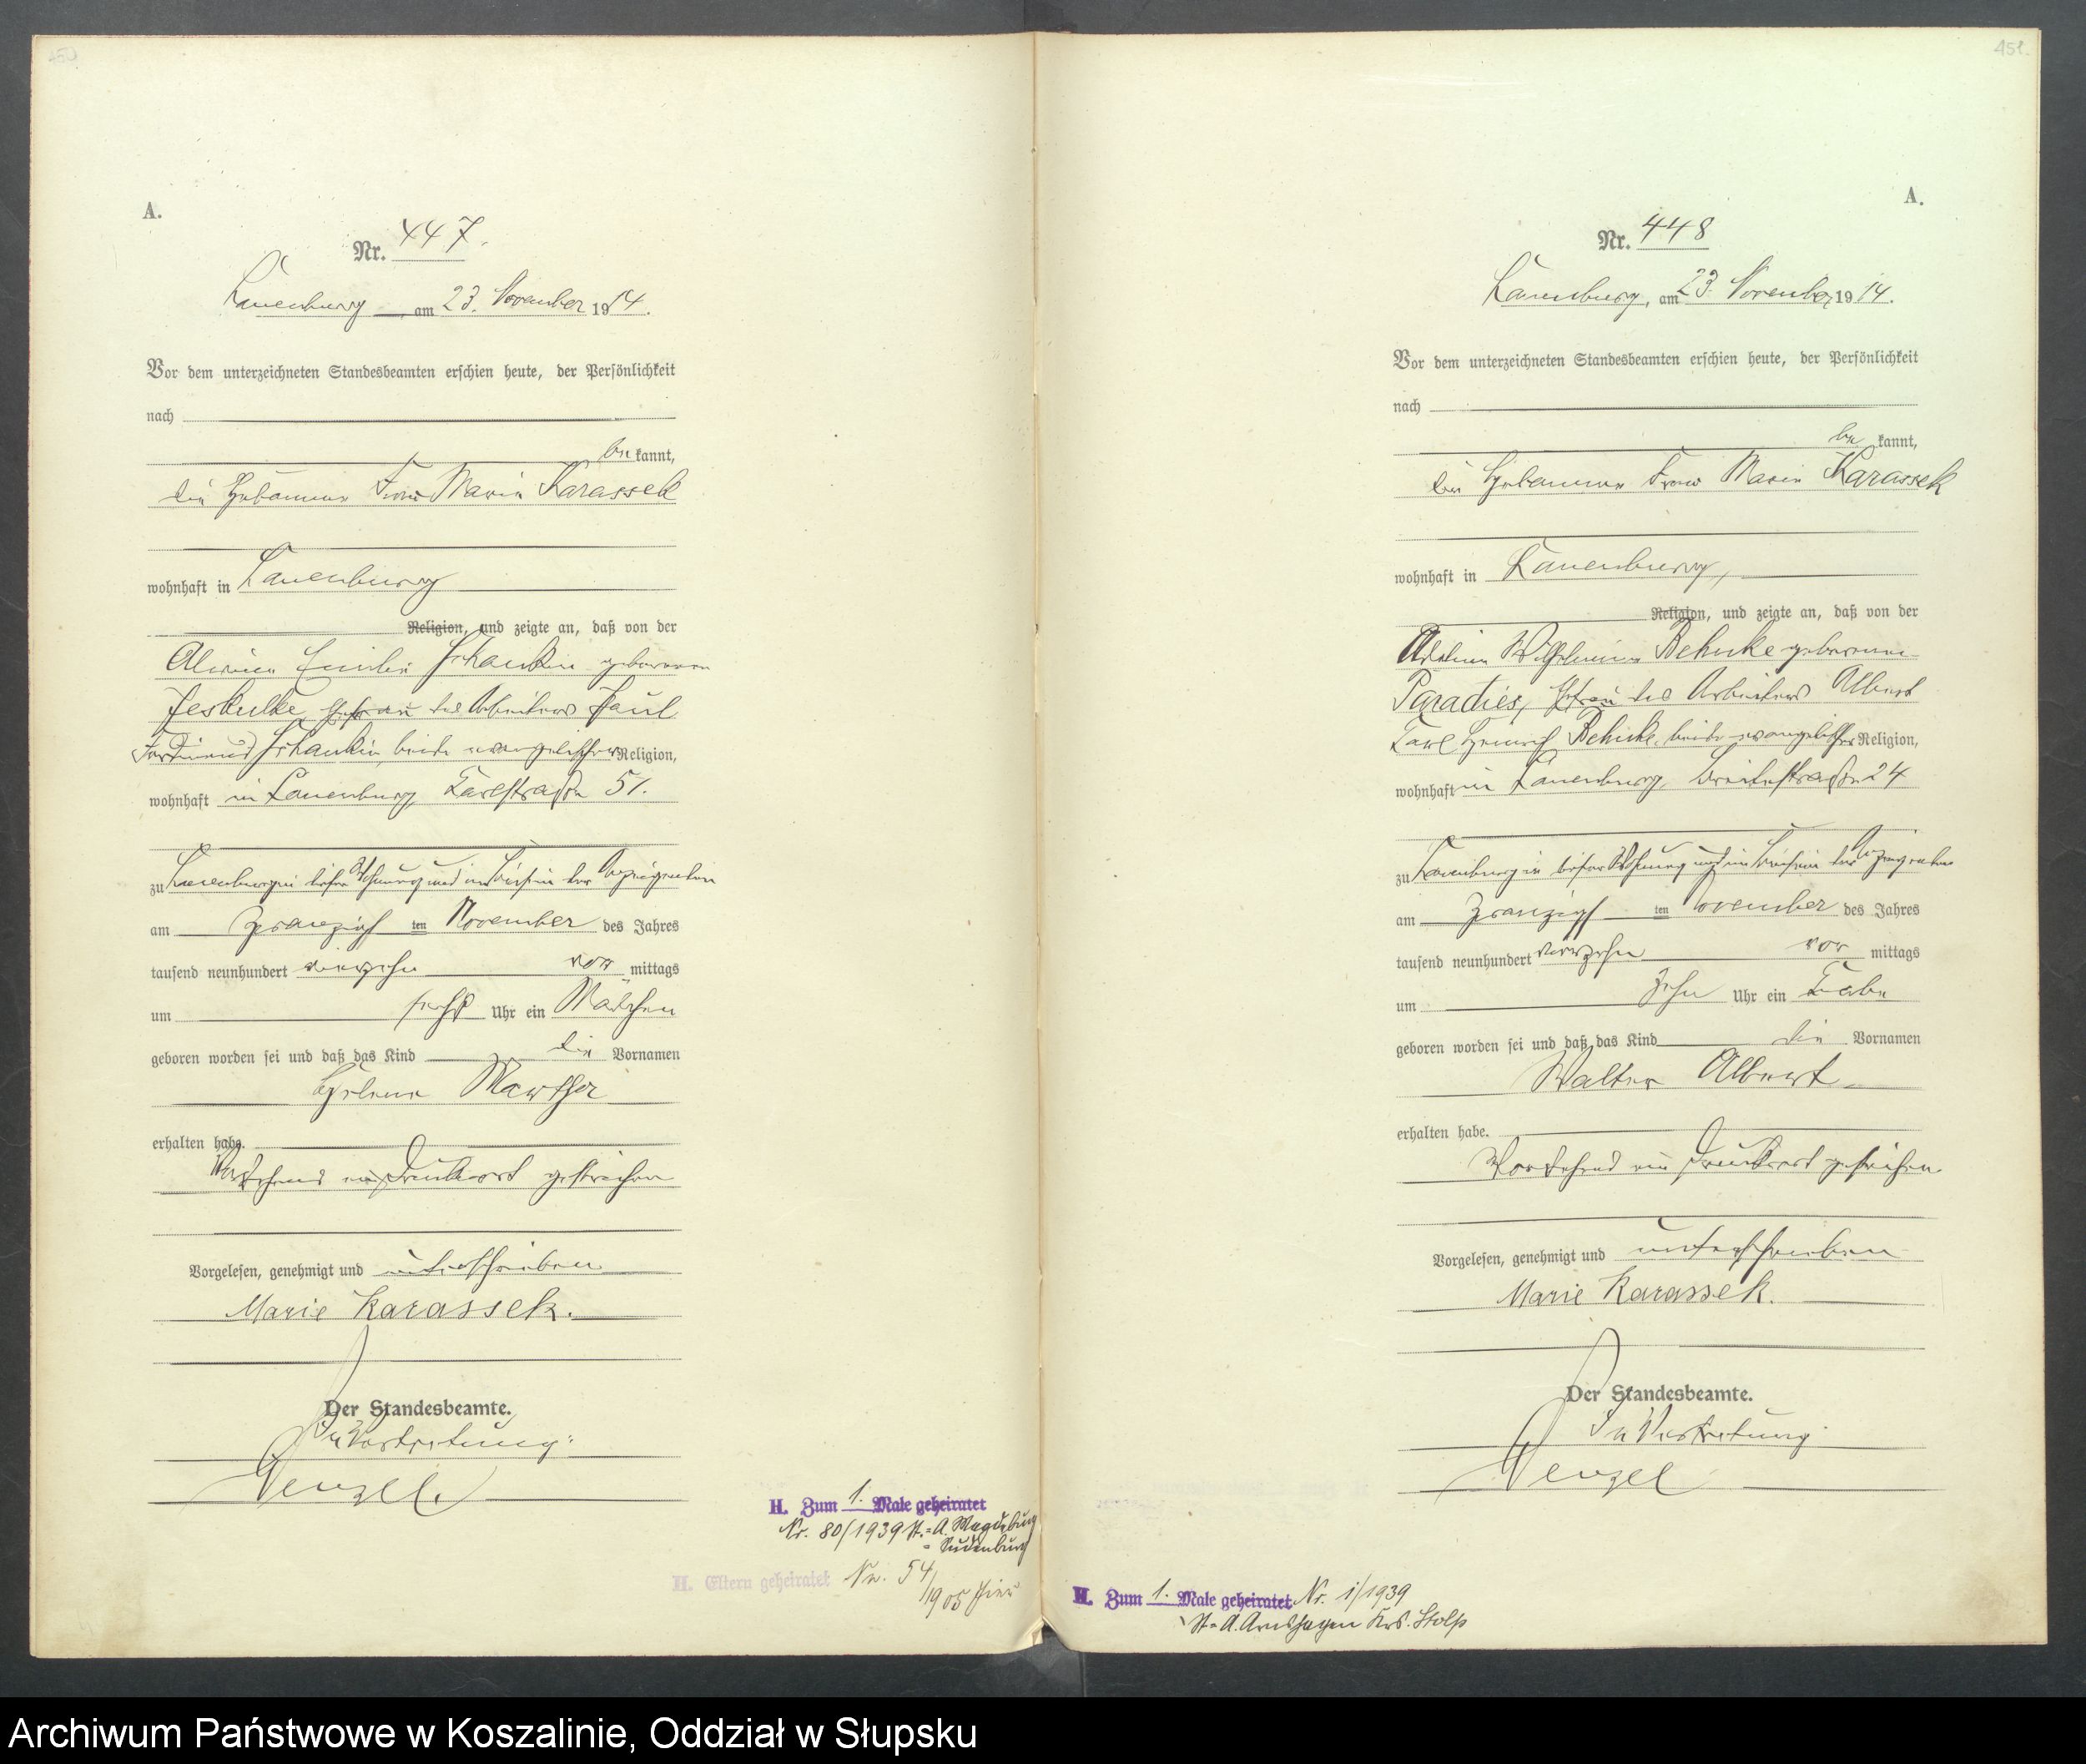 450
A.
Nr. 447.
Lauenburg, am 23. November 1914.
Vor dem unterzeichneten Standesbeamten erschien heute, der Persönlichkeit
nach
be kannt,
die Hebamme Frau Marie Karassek
wohnhaft in Lauenburg
Religion, und zeigte an, daß von der
Alwine Emilie geborenen
Jeskulke, Ehefrau des Arbeiters Paul
Ferdinand beide evangelischer Religion,
wohnhaft in Lauenburg, Karlstraße 51.
zu Lauenburg in dieser Wohnung und im Beisein der Anzeigenden
am zwanzigsten November des Jahres
tausend neunhundert vierzehn vor mittags
um sechs Uhr ein Mädchen
geboren worden sei und daß das Kind die Vornamen
Helene Martha
erhalten habe.
Vorstehend ein Druckwort gestrichen
Vorgelesen, genehmigt und unterschrieben
Marie Karassek.
Der Standesbeamte.
In Vertretung:
Wenzel.
H. Zum 1. Male geheiratet
Nr. 80/1939 St.=A. Magdeburg
=Sudenburg
H. Eltern geheiratet Nr. 54/1905 hier
451.
A.
Nr. 448
Lauenburg, am 23. November 1914.
Vor dem unterzeichneten Standesbeamten erschien heute, der Persönlichkeit
nach
be kannt,
die Hebamme Frau Marie Karassek
wohnhaft in Lauenburg,
Religion, und zeigte an, daß von der
Adeline Wilhelmine Behnke geborenen
Paradies, Ehefrau des Arbeiters Albert
Karl Heinrich Behnke, beide evangelischer Religion,
wohnhaft in Lauenburg, Breitestraße 24
zu Lauenburg in dieser Wohnung und im Beisein der Anzeigenden
am zwanzigsten November des Jahres
tausend neunhundert vierzehn vor mittags
um zehn Uhr ein Knabe
geboren worden sei und daß das Kind die Vornamen
Walter Albert
erhalten habe.
Vorstehend ein Druckwort gestrichen
Vorgelesen, genehmigt und unterschrieben
Marie Karassek.
Der Standesbeamte.
In Vertretung
Wenzel
H. Zum 1. Male geheiratet Nr. 1/1939
St.=A. Arnshagen Krs. Stolp
Archiwum Państwowe w Koszalinie, Oddział w Słupsku